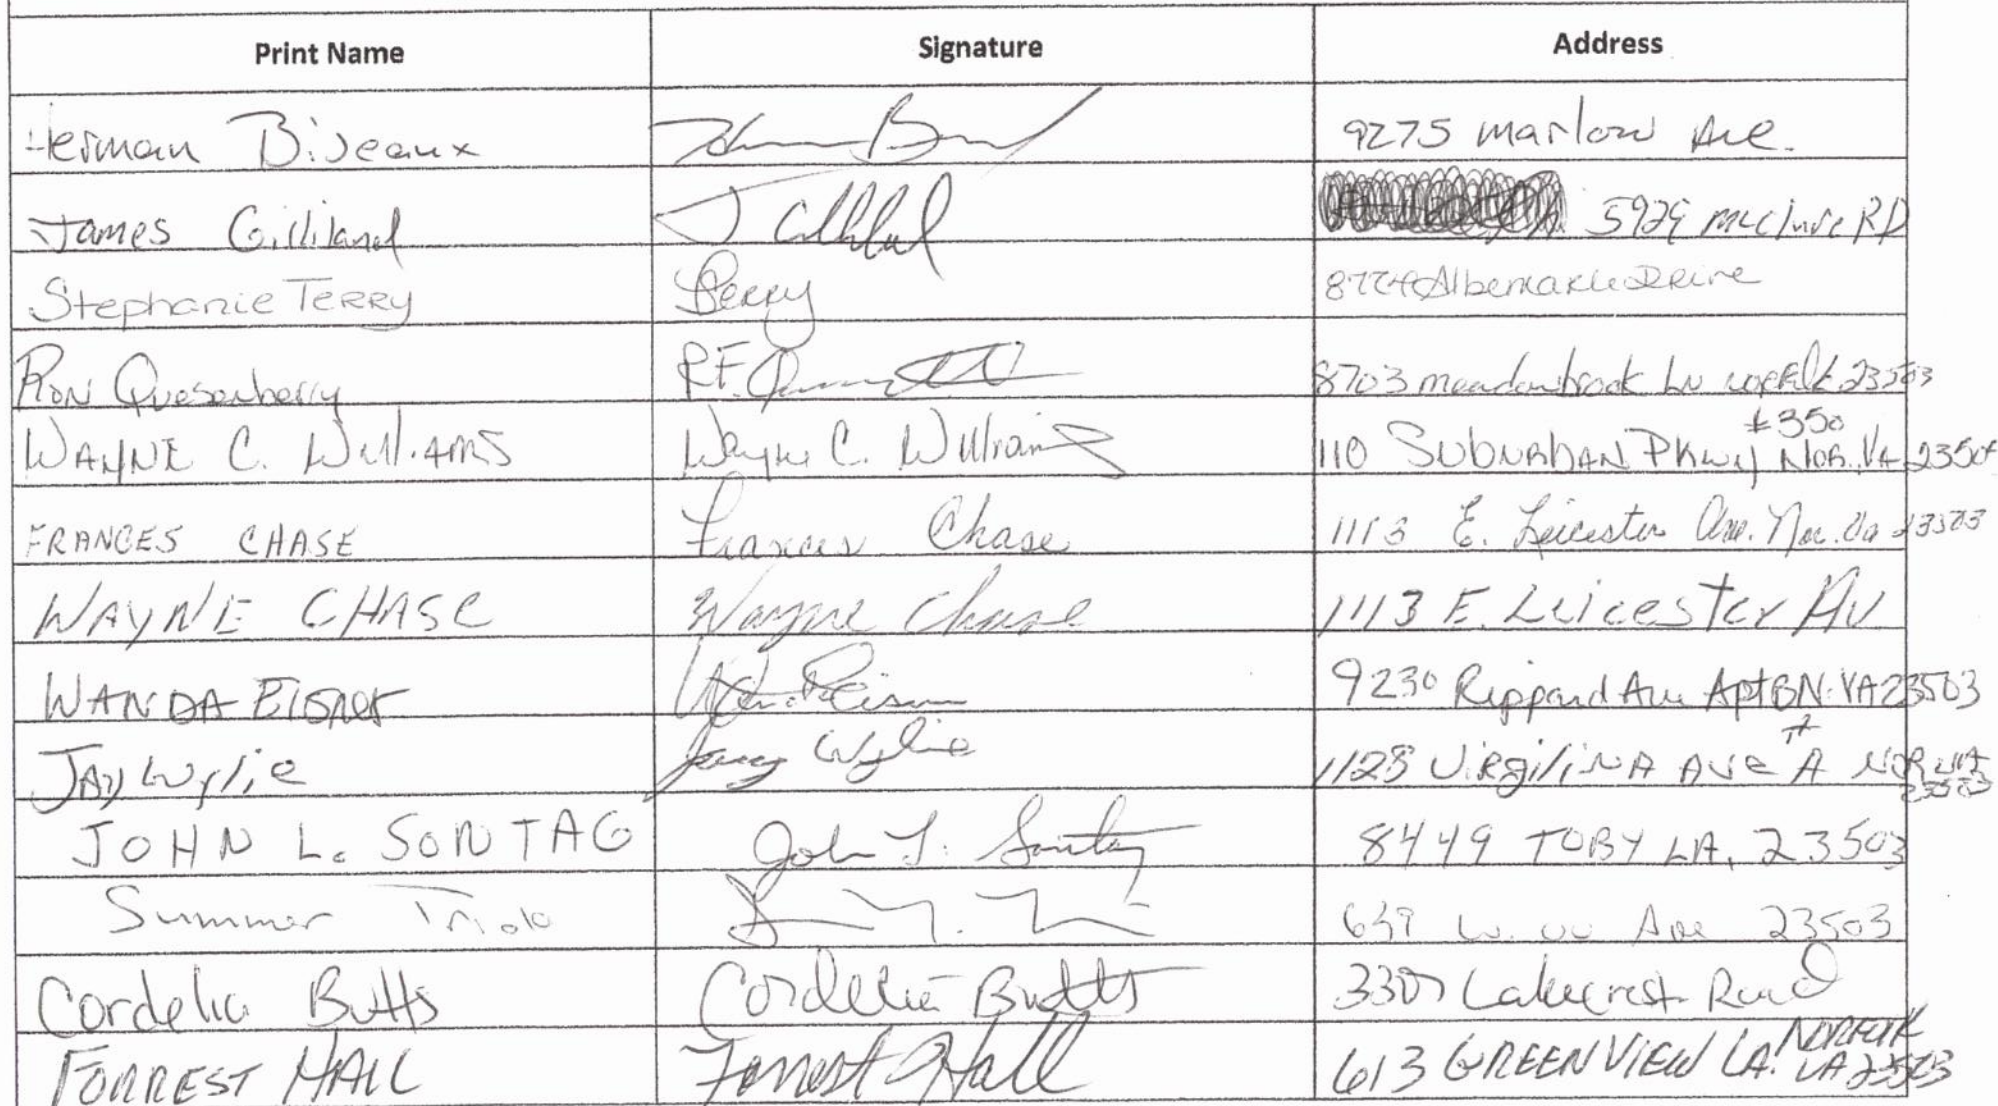 Print Name Signature Address
Herman Biveaux 9275 Marlow Ave.
James Gilliland 5929 McClure RD
Stephanie Terry Terry Albemarle Drive
Ron Quesenberry R.F. 8703 meadowbrook Ln Norfolk 23503
#350
WAYNE C. Williams Wayne C. Williams 110 Suburban Pkwy Nor. VA
FRANCES CHASE Frances Chase 1113 E. Leicester Ave. Nor. Va 23503
WAYNE CHASE Wayne Chase 1113 E. Leicester Av
WANDA 9230 Rippard Ave Apt VA 23503
#
JAY Wylie Jay Wylie 1128 Virgilina Ave A NOR VA
23503
JOHN L. SONTAG John L. Sontag 8449 TOBY LA, 23503
Summer 639 W. Ave 23503
Cordelia Butts Cordelia Butts Lakecrest Road
NORFOLK
FORREST HALL Forrest Hall 613 GREENVIEW LA. VA 23503